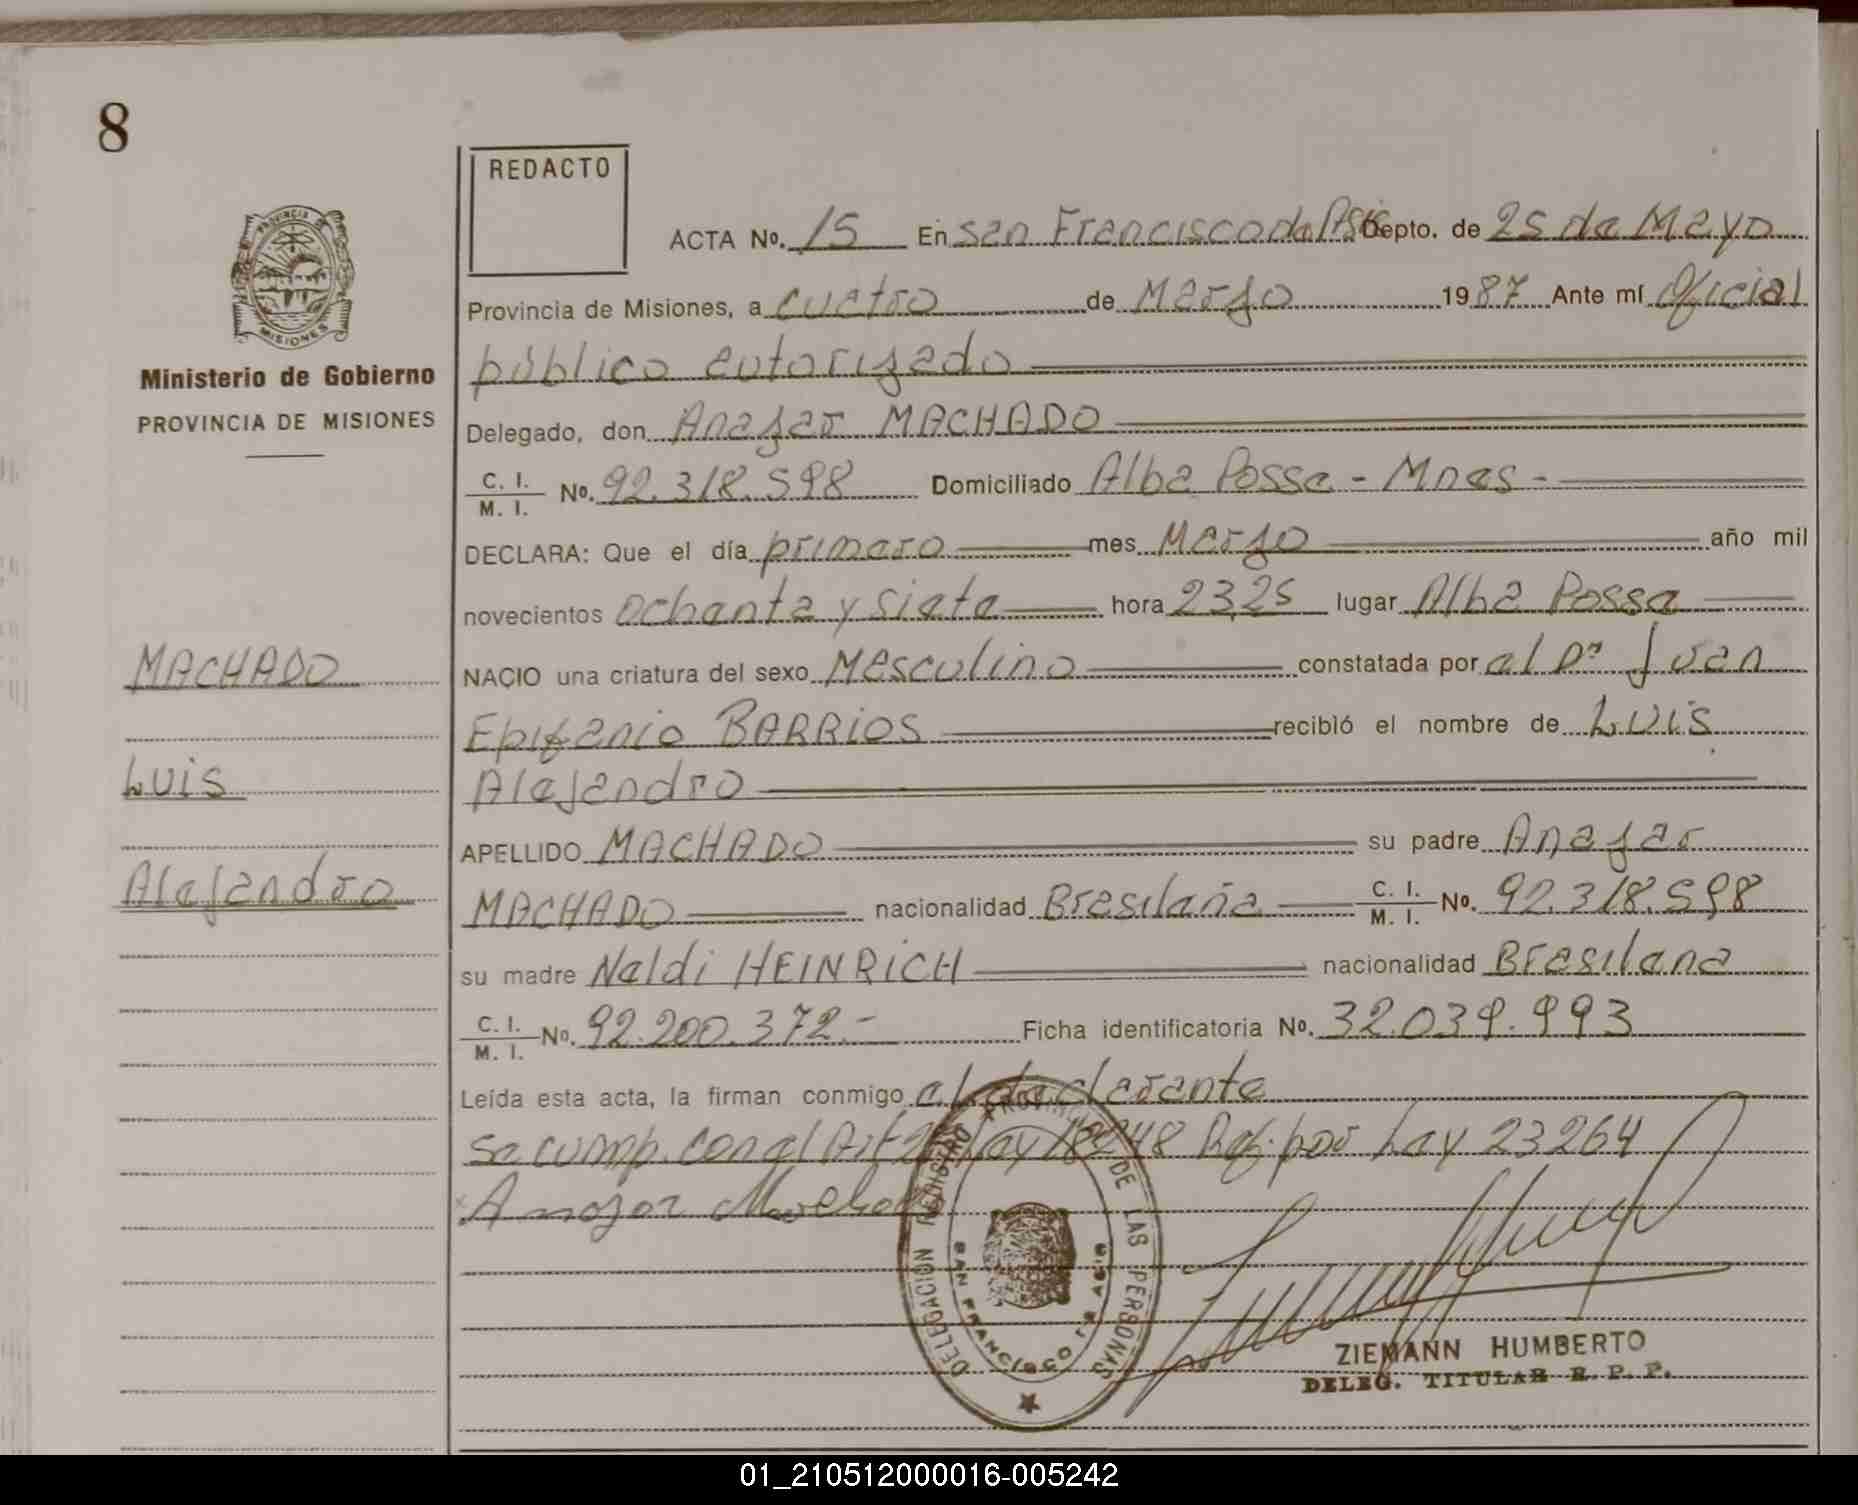 8
REDACTO
ACTA No. 15 En San Francisco de Asis Depto. de 25 de Mayo
Provincia de Misiones, a cuatro de Marzo 1987 Ante mí Oficial
público autorizado
Ministerio de Gobierno
PROVINCIA DE MISIONES
Delegado, don Anajar MACHADO
C. I. / M. I. No. 92.318.598 Domiciliado Alba Posse - Mnes -
DECLARA: Que el día primero mes Marzo año mil
novecientos ochenta y siete hora 23,25 lugar Alba Posse
MACHADO
NACIO una criatura del sexo Masculino constatada por el Dr Juan
Epifanio BARRIOS recibió el nombre de Luis
Luis
Alejandro
APELLIDO MACHADO su padre Anajar
Alejandro
MACHADO nacionalidad Brasileña C. I. / M. I. No. 92.318.598
su madre Naldi HEINRICH nacionalidad Brasilena
C. I. / M. I. No. 92.200.372.- Ficha identificatoria No. 32.039.993
Leída esta acta, la firman conmigo el declarante
se cump. con el Art 2 Ley 18248 Ref. por Ley 23264
Anajar Machado
DELEGACION REGISTRO PROVINCIAL DE LAS PERSONAS
SAN FRANCISCO DE ASIS
PROVINCIA DE MISIONES
ZIEMANN HUMBERTO
DELEG. TITULAR R. P. P.
01_210512000016-005242